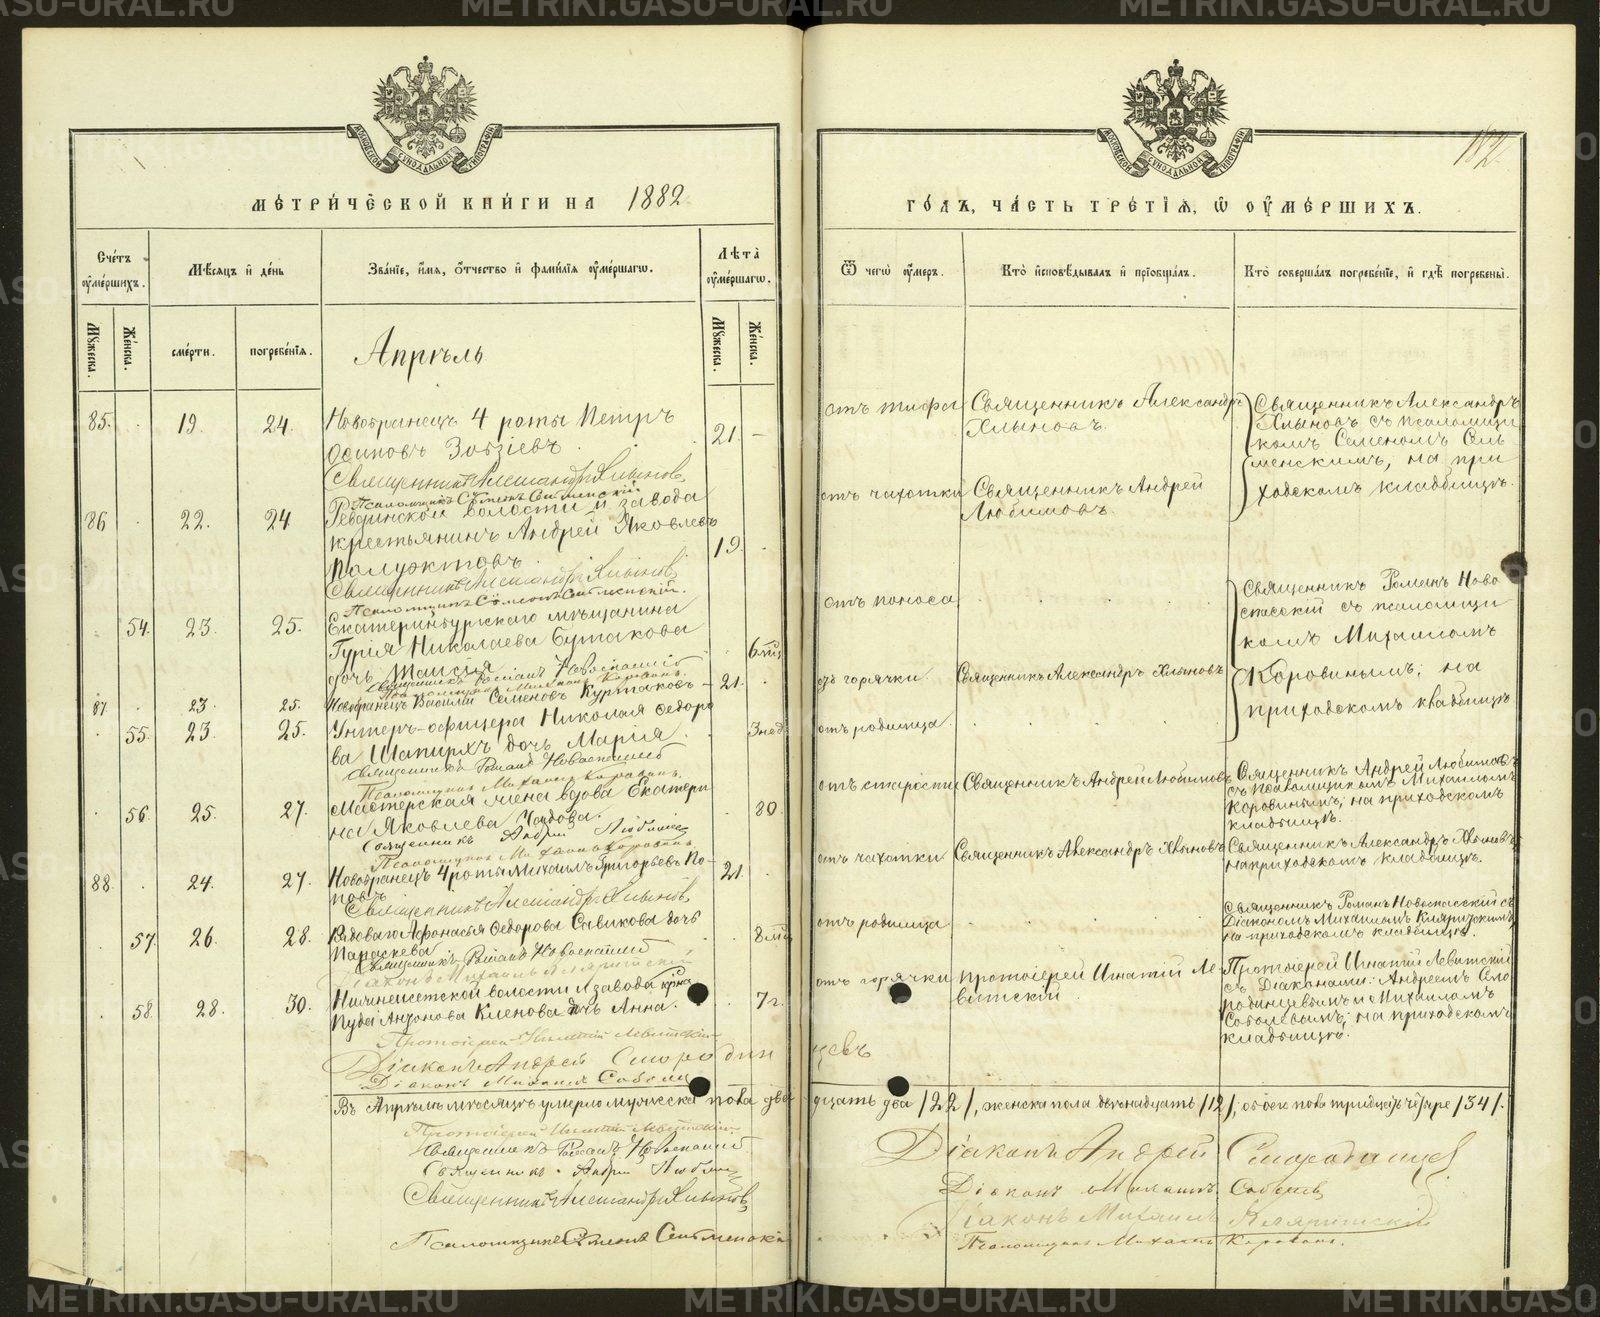 METRIKI.GASO-URAL.RU
МОСКОВСКОЙ СѴНОДАЛЬНОЙ ТИПОГРАФІИ
МЕТРИЧЕСКОЙ КНИГИ НА 1882
Счетъ оумершихъ.
Мѣсяцъ и день
Званіе, имя, отчество и фамилія оумершагѡ.
Лѣта оумершагѡ.
Мужеска.
Женска.
смерти.
погребенія.
Мужеска.
Женска.
Апрѣль
85. 19. 24. Новобранецъ 4 роты Петръ
Осиповъ 21. –
Священникъ Александръ Хлыновъ
Псаломщикъ Сѵмеонъ Сельменскій
86 22. 24 Ревдинской волости и завода
крестьянинъ Андрей Яковлевъ
Полуэктовъ. 19.
Священникъ Александръ Хлыновъ
Псаломщикъ Сѵмеонъ Сельменскій.
54. 23. 25. Екатеринбургскаго мѣщанина
Гурія Николаева Бутакова
дочь Таисія 6 мѣс.
Священникъ Романъ Новоспасскій
Псаломщикъ Михаилъ Коровинъ.
87 23. 25. Новобранецъ Василій Семеновъ Куртаковъ – 21.
55. 23. 25. Унтеръ-офицера Николая Ѳедоро
ва дочь Марія. 3 нед.
Священникъ Романъ Новоспасскій
Псаломщикъ Михаилъ Коровинъ.
56. 25. 27. Мастерская жена вдова Екатери
на Яковлева 80.
Священникъ Андрей Любимовъ
Псаломщикъ Михаилъ Коровинъ
88. 24. 27. Новобранецъ 4 роты Михаилъ Григорьевъ По-
повъ 21.
Священникъ Александръ Хлыновъ
57. 26. 28. Рядоваго Афонасія Ѳедорова Савикова дочь
Параскева 8 мѣс.
Священникъ Романъ Новоспасскій
Діаконъ Михаилъ
58. 28. 30. Нижнеисетской волости и завода кр-на
Антонова Кленова дочь Анна. 7 г.
Протоіерей Игнатій Левитскій
Діаконъ Андрей Смородин
Діаконъ Михаилъ Соболев
Въ Апрѣлѣ мѣсяцѣ умерло мужеска пола два
Протоіерей Игнатій Левитскій.
Священникъ Романъ Новоспасскій
Священникъ Андрей Любимовъ
Священникъ Александръ Хлыновъ
Псаломщикъ Сѵмеонъ Сельменскій
182.
МОСКОВСКОЙ СѴНОДАЛЬНОЙ ТИПОГРАФІИ
ГОДЪ, ЧАСТЬ ТРЕТІЯ, Ѡ ОУМЕРШИХЪ.
Ѿ чегѡ оумеръ.
Кто исповѣдывалъ и пріобщалъ.
Кто совершалъ погребеніе, и гдѣ погребены.
отъ тифа Священникъ Александръ
Хлыновъ.
Священникъ Александръ
Хлыновъ съ псаломщи
комъ Семеномъ Сель
менскимъ, на при
ходскомъ кладбищѣ.
отъ чахотки Священникъ Андрей
Любимовъ.
отъ поноса
Священникъ Романъ Ново
спасскій съ псаломщи
комъ Михаиломъ
Коровинымъ; на
приходскомъ кладбищѣ
отъ горячки. Священникъ Александръ Хлыновъ
отъ родимца.
отъ старости Священникъ Андрей Любимовъ
Священникъ Андрей Любимовъ
съ псаломщикомъ Михаиломъ
Коровинымъ; на приходскомъ
кладбищѣ.
отъ чахотки Священникъ Александръ Хлыновъ
Священникъ Александръ Хлыновъ
на приходскомъ кладбищѣ.
отъ родимца
Священникъ Романъ Новоспасскій съ
Діакономъ Михаиломъ
на приходскомъ кладбищѣ.
отъ горячки Протоіерей Игнатій Ле-
витскій
Протоіерей Игнатій Левитскій
съ Діаконами: Андреемъ Смо
родинцевымъ и Михаиломъ
Соболевымъ; на приходскомъ
кладбищѣ.
цевъ
дцать два /22/, женска пола двѣнадцать /12/, обоего пола тридцать четыре /34/.
Діаконъ Андрей Смородинцев
Діаконъ Михаилъ Соболев
Діаконъ Михаилъ
Псаломщикъ Михаилъ Коровинъ.